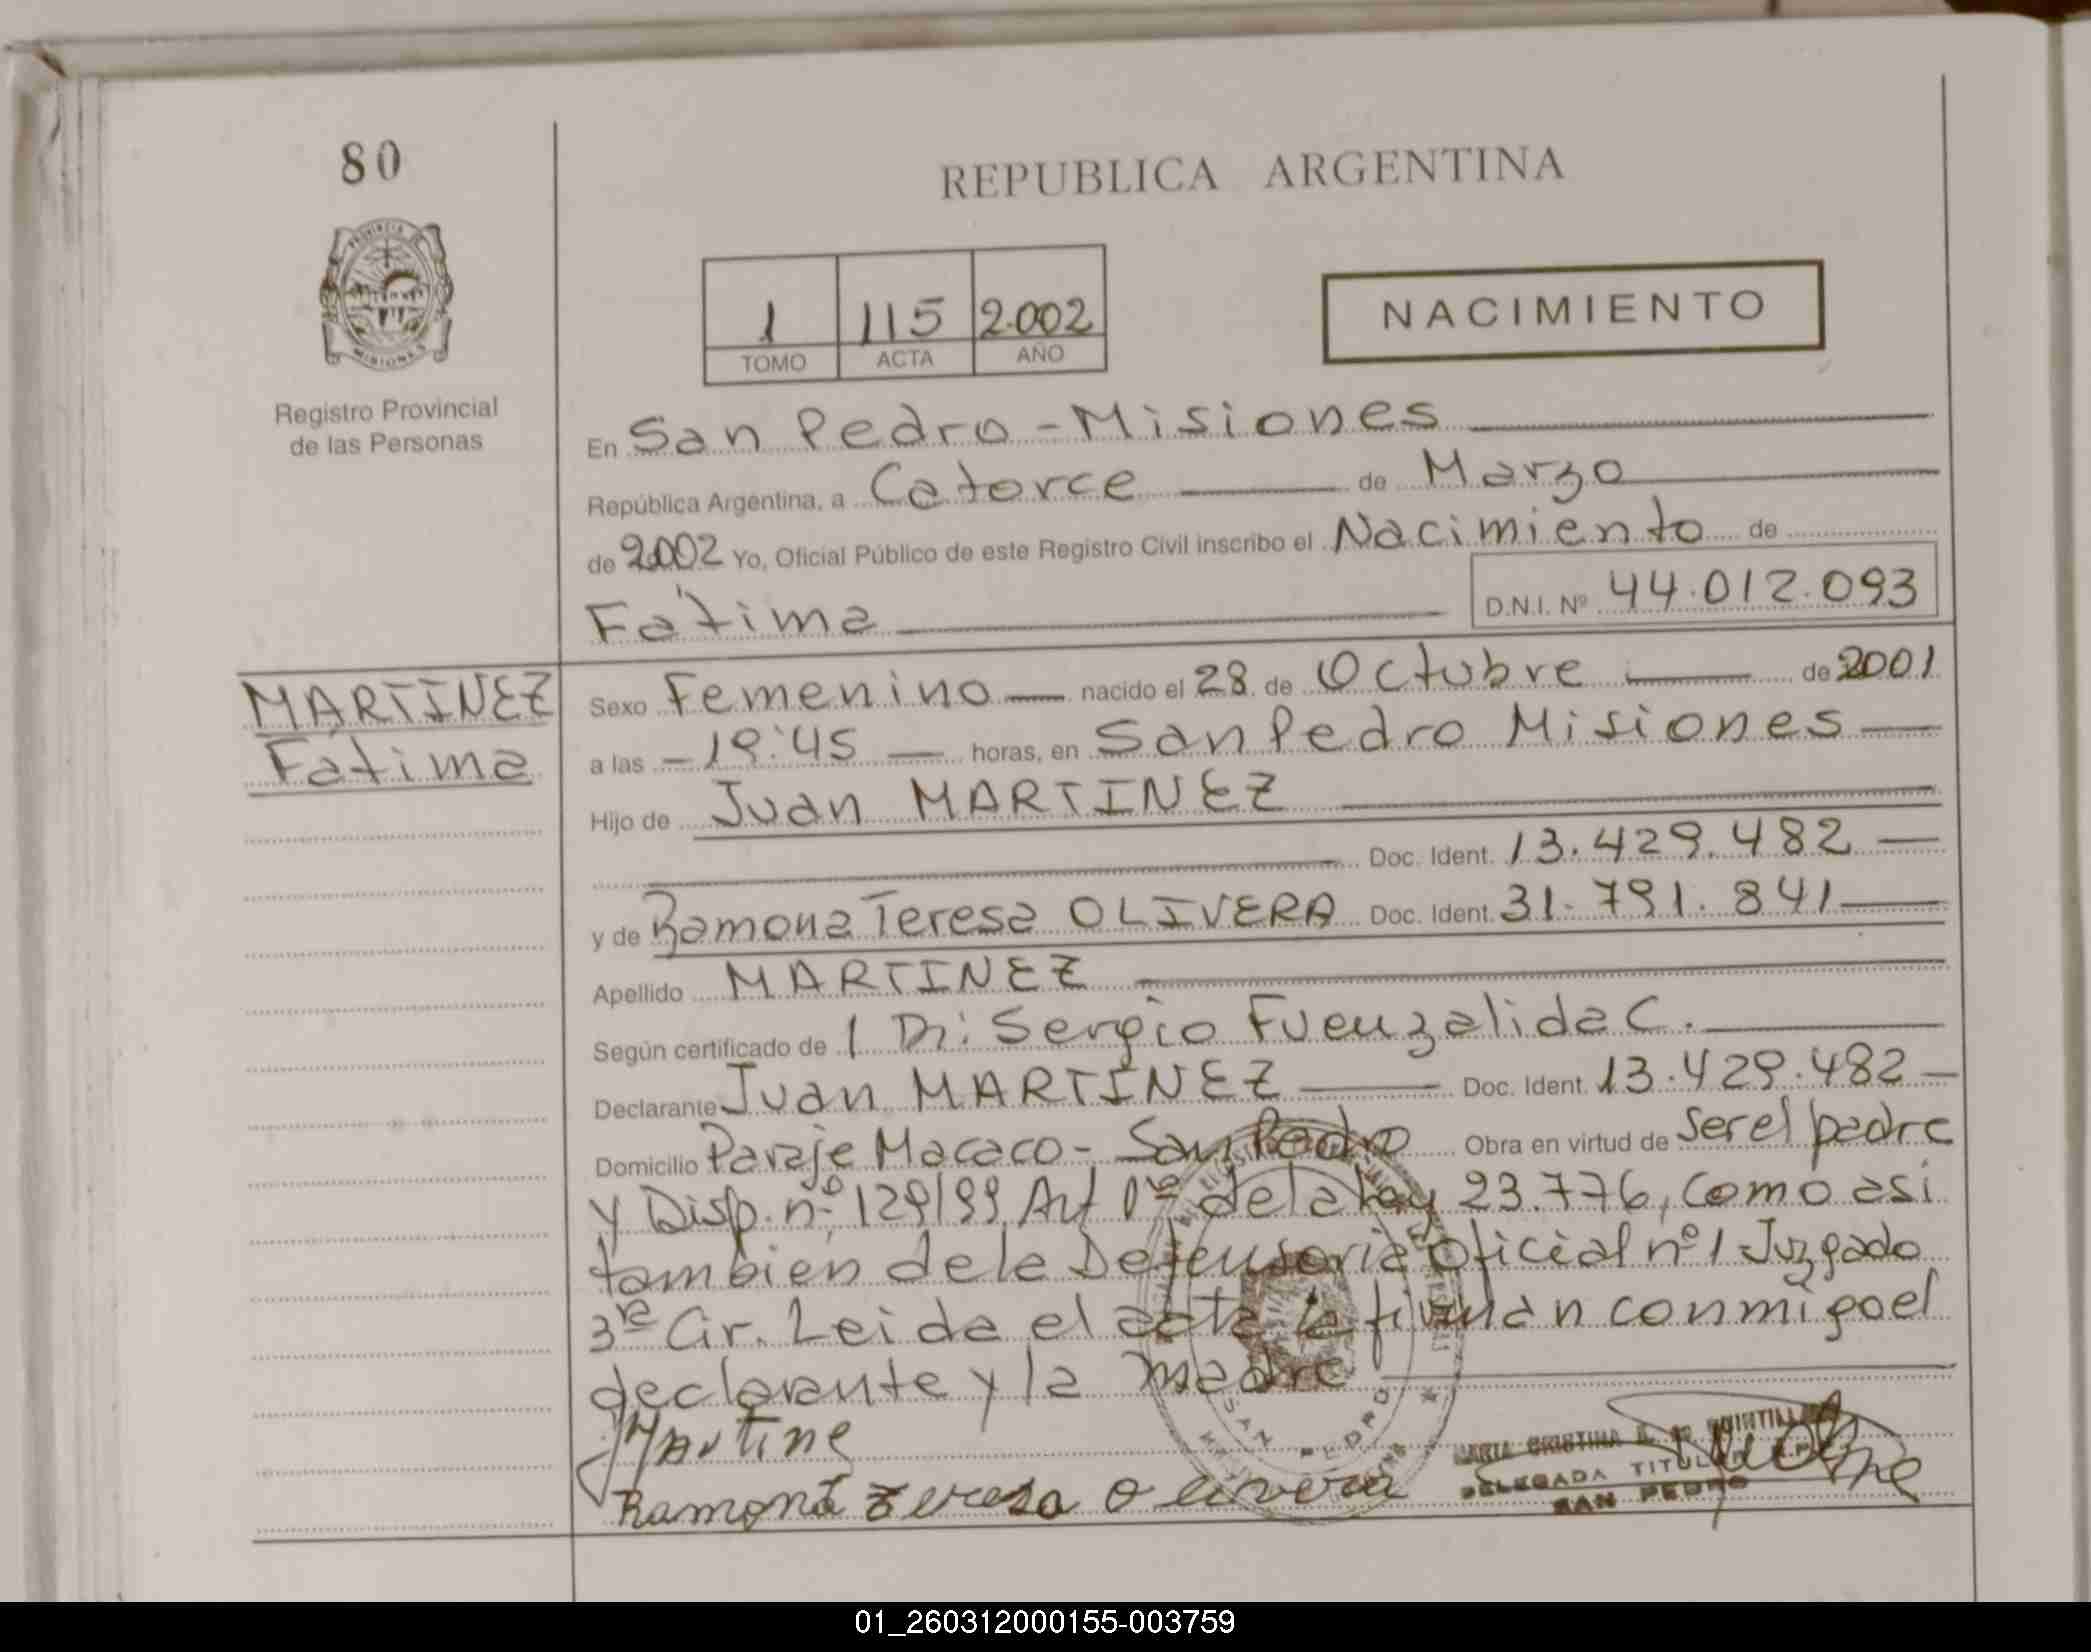 80
REPUBLICA ARGENTINA
1 115 2.002
TOMO ACTA AÑO
NACIMIENTO
PROVINCIA DE
MISIONES
Registro Provincial
de las Personas
En San Pedro - Misiones
República Argentina, a Catorce de Marzo
de 2002 Yo, Oficial Público de este Registro Civil inscribo el Nacimiento de
Fátima D.N.I. Nº 44.012.093
MARTINEZ
Fátima
Sexo Femenino nacido el 28 de Octubre de 2001
a las - 19:45 horas, en San Pedro Misiones
Hijo de Juan MARTINEZ
Doc. Ident. 13.429.482
y de Ramona Teresa OLIVERA Doc. Ident. 31.791.841
Apellido MARTINEZ
Según certificado de Dr: Sergio Fuenzalida C.
Declarante Juan MARTINEZ Doc. Ident. 13.429.482
Domicilio Paraje Macaco - San Pedro Obra en virtud de ser el padre
y Disp. nº 129/99 Art 1º de la Ley 23.776, como asi
tambien de la Defensoria Oficial nº 1 Juzgado
3ra Cir. Leida el acta la firman conmigo el
declarante y la madre
Martine
Ramona Teresa olivera
SAN PEDRO
MARIA CRISTINA
DELEGADA TITULAR
SAN PEDRO
01_260312000155-003759